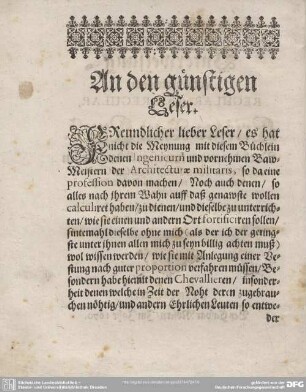 An den günstigen
Leser.
FReundlicher lieber Leser / es hat
nicht die Meynung mit diesem Büchlein
denen Ingenieurn und vornehmen Baw-
Meistern der Architecturæ militaris, so da eine
profession davon machen / Noch auch denen / so
alles nach jhrem Wahn auff daß genawste wollen
calculiret haben / zu dienen / und dieselbe zu unterrich-
ten / wie sie einen und andern Ort fortificiren sollen /
sintemahl dieselbe ohne mich (als der ich der gering-
ste unter jhnen allen mich zu seyn billig achten muß)
wol wissen werden / wie sie mit Anlegung einer Ve-
stung nach guter proportion verfahren müssen / Be-
sondern habe hiemit denen Chevallieren / insonder-
heit denen welche in Zeit der Noht deren zugebrau-
chen nöhtig / und andern Ehrlichen Leuten so entwe-
der